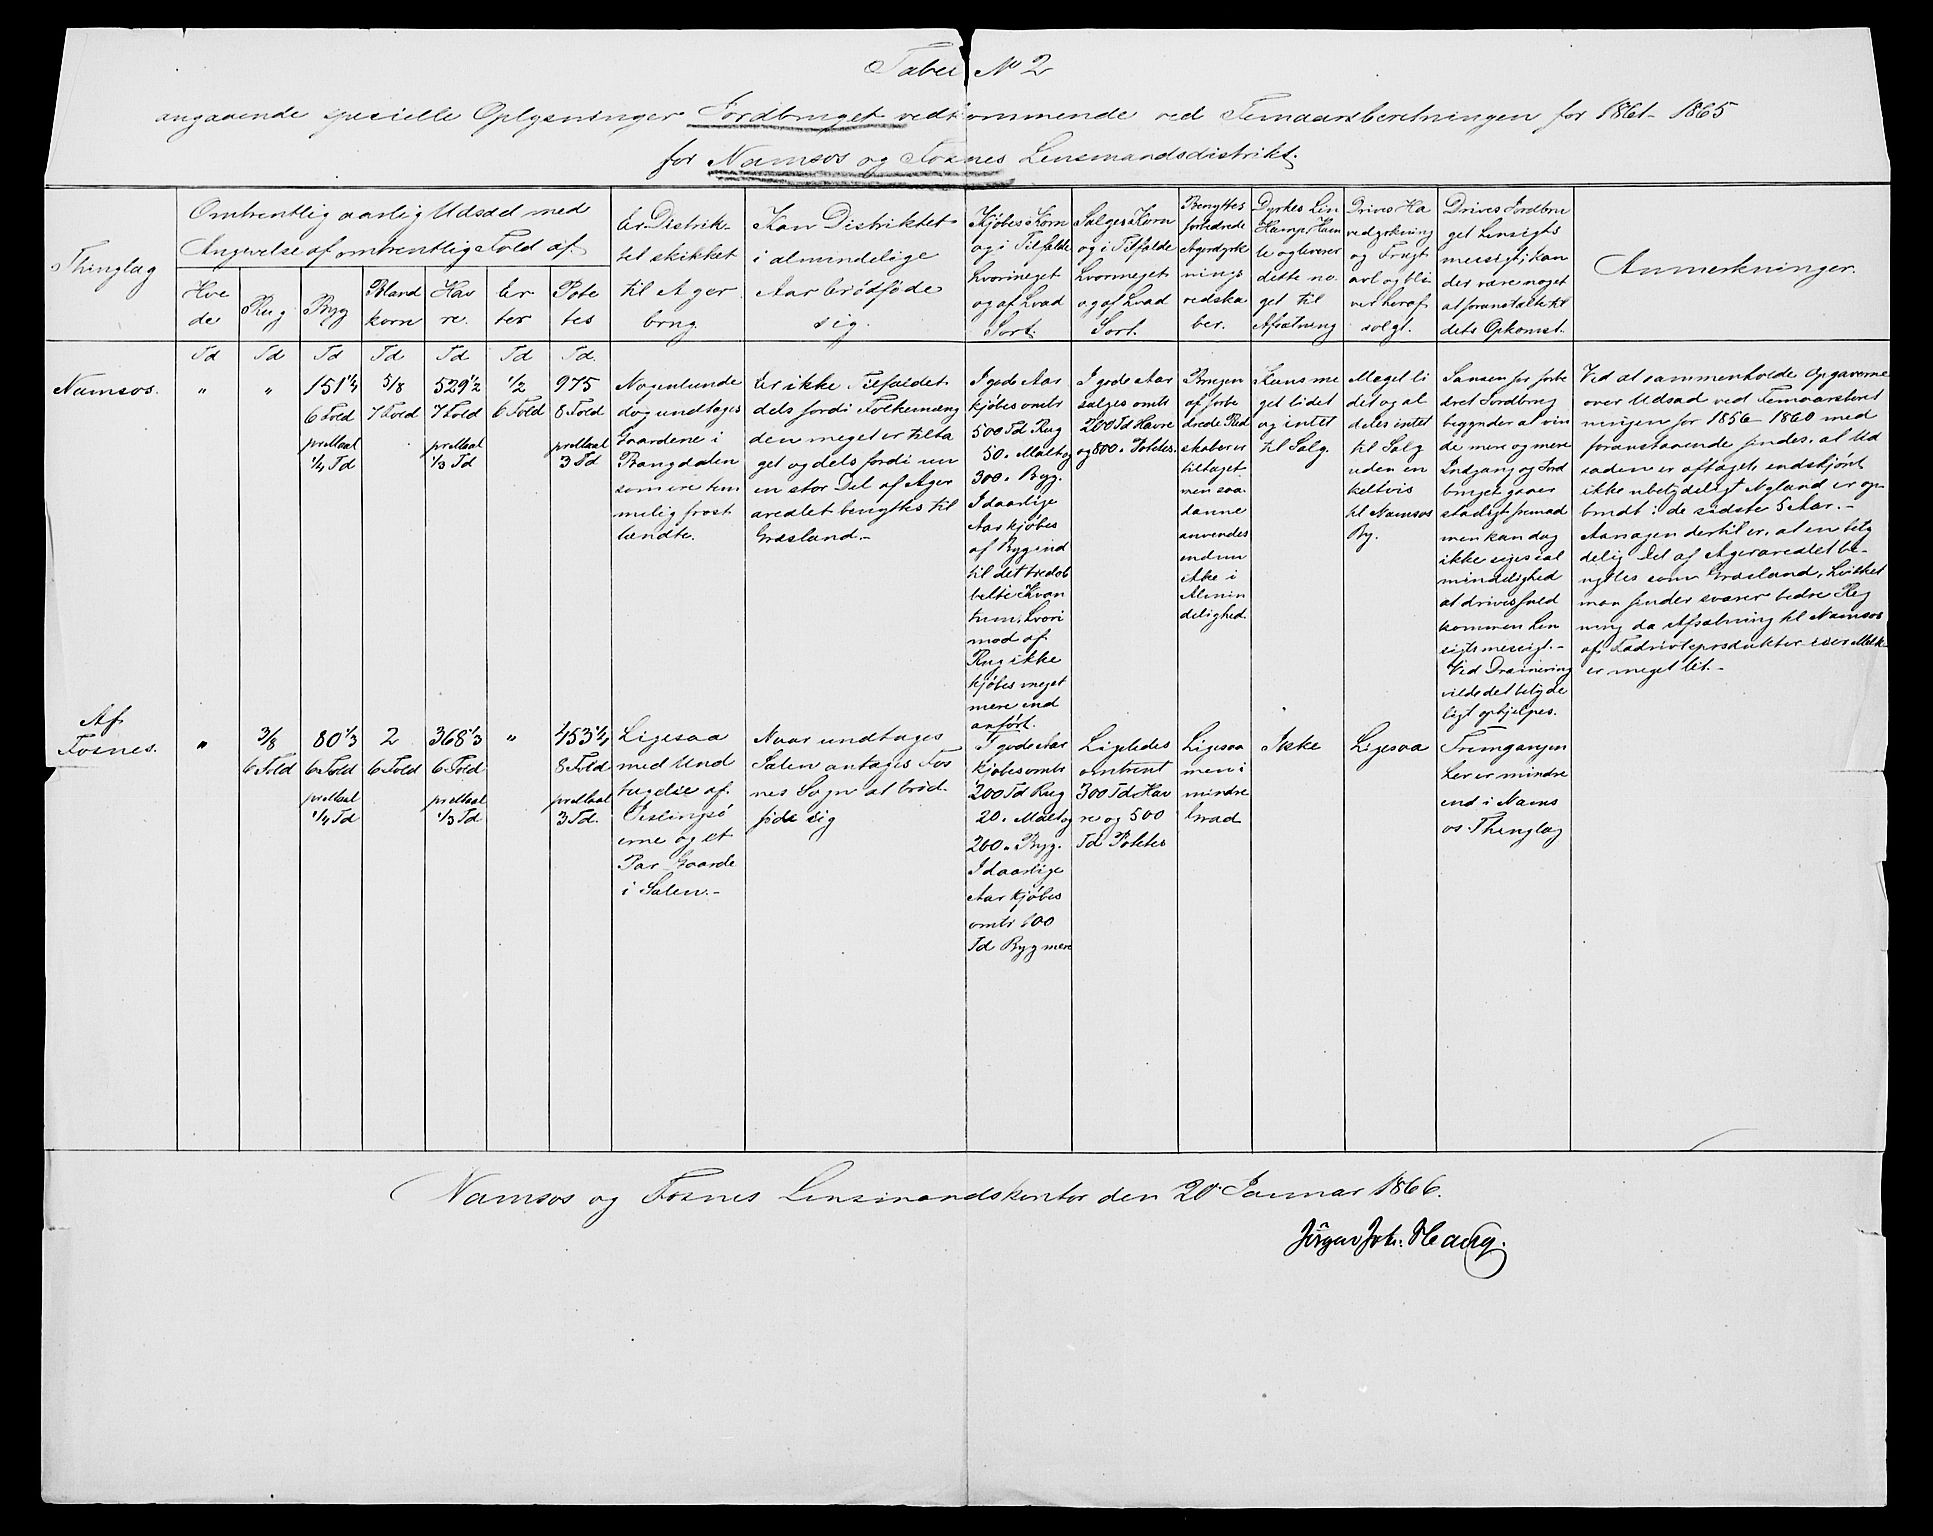 Tabel No 2
angaaende specielle Oplysninger Jordbruget vedkommende ved Femaarsberetningen for 1861-1865
for Namsos og Fosnes Lensmandsdistrikt.
Thinglag
Omtrentlig aarlig Udsæd med
Angivelse af omtrentlig Fold af.
Hve
de
Rug
Byg
Bland
korn
Hav
re.
Er
ter
Pote
tes
Er Distrik-
tet skikket
til Ager
brug.
Kan Distriktet
i almindelige
Aar brødføde
sig.
Kjøbes Korn
og i Tilfælde
hvormeget
og af hvad
Sort.
Sælges Korn
og i Tilfælde
hvormeget
og af hvad
Sort.
Benyttes
forbedrede
Agerdyrk
nings
redska
ber.
Dyrkes Lin
Hamp, Hum
le og leverer
dette no
get til
Afsætning
Drives Ha
vedyrkning
og Frugt
avl og bli
ver heraf
solgt.
Drives Jordbru
get hensigts
messigt, kan
der være noget
at foranstalte til
dets Opkomst.
Anmerkninger.
Td Td Td Td Td Td Td.
Namsos.
"
"
151 1/4
6 Fold
pr Maal
1/4 Td
5/8
7 Fold
529 1/2
7 Fold
pr Maal
1/3 Td
1/2
6 Fold
975
8 Fold
pr Maal
3 Td
Nogenlunde
dog undtages
Gaardene i
Bangdalen
som ere tem
melig frost
lændte.
Er ikke Tilfældet
dels fordi Folkemæng
den meget er tilta
get og dels fordi en
en stor Del af Ager
arealet benyttes til
Græsland.-
I gode Aar
kjøbes omtr
500 Td Rug
50 " Malt og
300 " Byg.
I daarlige
Aar kjøbes
af Byg ind
til det tredob
belte Kvan
tum, hvori
mod af
Rug ikke
kjøbes meget
mere end
anført.
I gode Aar
sælges omtr
200 Td Havre
og 800 " Potetes.
Brugen
af forbe
drede Red
skaber er
tiltaget
men saa
danne
anvendes
endnu
ikke i
Almin
delighed.
Kuns me
get lidet
og intet
til Salg.
Meget li
det og al
deles intet
til Salg
uden en
keltvis
til Namsos
By.
Sansen for forbe
dret Jordbrug
begynder at vin
de mere og mere
Indgang og Jord
bruget gaaer
stadigt fremad
men kan dog
ikke siges i al
mindelighed
at drives fuld
kommen hen
sigtsmessigt.-
Ved Drainering
vilde det betyde
ligt ophjelpes.
Ved at sammenholde Opgaverne
over Udsæd ved Femaarsberet
ningen for 1856-1860 med
foranstaaende findes, at Ud
sæden er aftaget, endskjønt
ikke ubetydeligt Nyland er op-
brudt i de sidste 5 Aar.-
Aarsagen dertil er, at en bety
delig Del af Agerarealet be-
nyttes som Græsland, hvilket
man finder svarer bedre Reg
ning da Afsætning til Namsos
af Fædrivtsprodukter især Melk
er meget let.-
Af
Fosnes.
"
3/8
6 Fold
80 1/3
6 Fold
pr Maal
1/4 Td
2
6 Fold
368 1/3
6 Fold
pr Maal
1/3 Td
"
453 1/4
8 Fold
pr Maal
3 Td.
Ligesaa
med Und
tagelse af
erne og et
Par Gaarde
i Salen.-
Naar undtages
Salen antages Fos
nes Sogn at brød
føde sig
I gode Aar
kjøbes omtr
200 Td Rug
20 " Malt og
200 " Byg.
I daarlige
Aar kjøbes
omtr 600
Td Byg mere
Ligeledes
omtrent
300 Td Hav
re og 500
Td Potetes
Ligesaa
men i
mindre
Grad
Ikke
Ligesaa
Fremgangen
her er mindre
end i Nams
os Thinglag
Namsos og Fosnes Lensmandskontor den 20 Januar 1866.
Jørgen Joh. Haug.